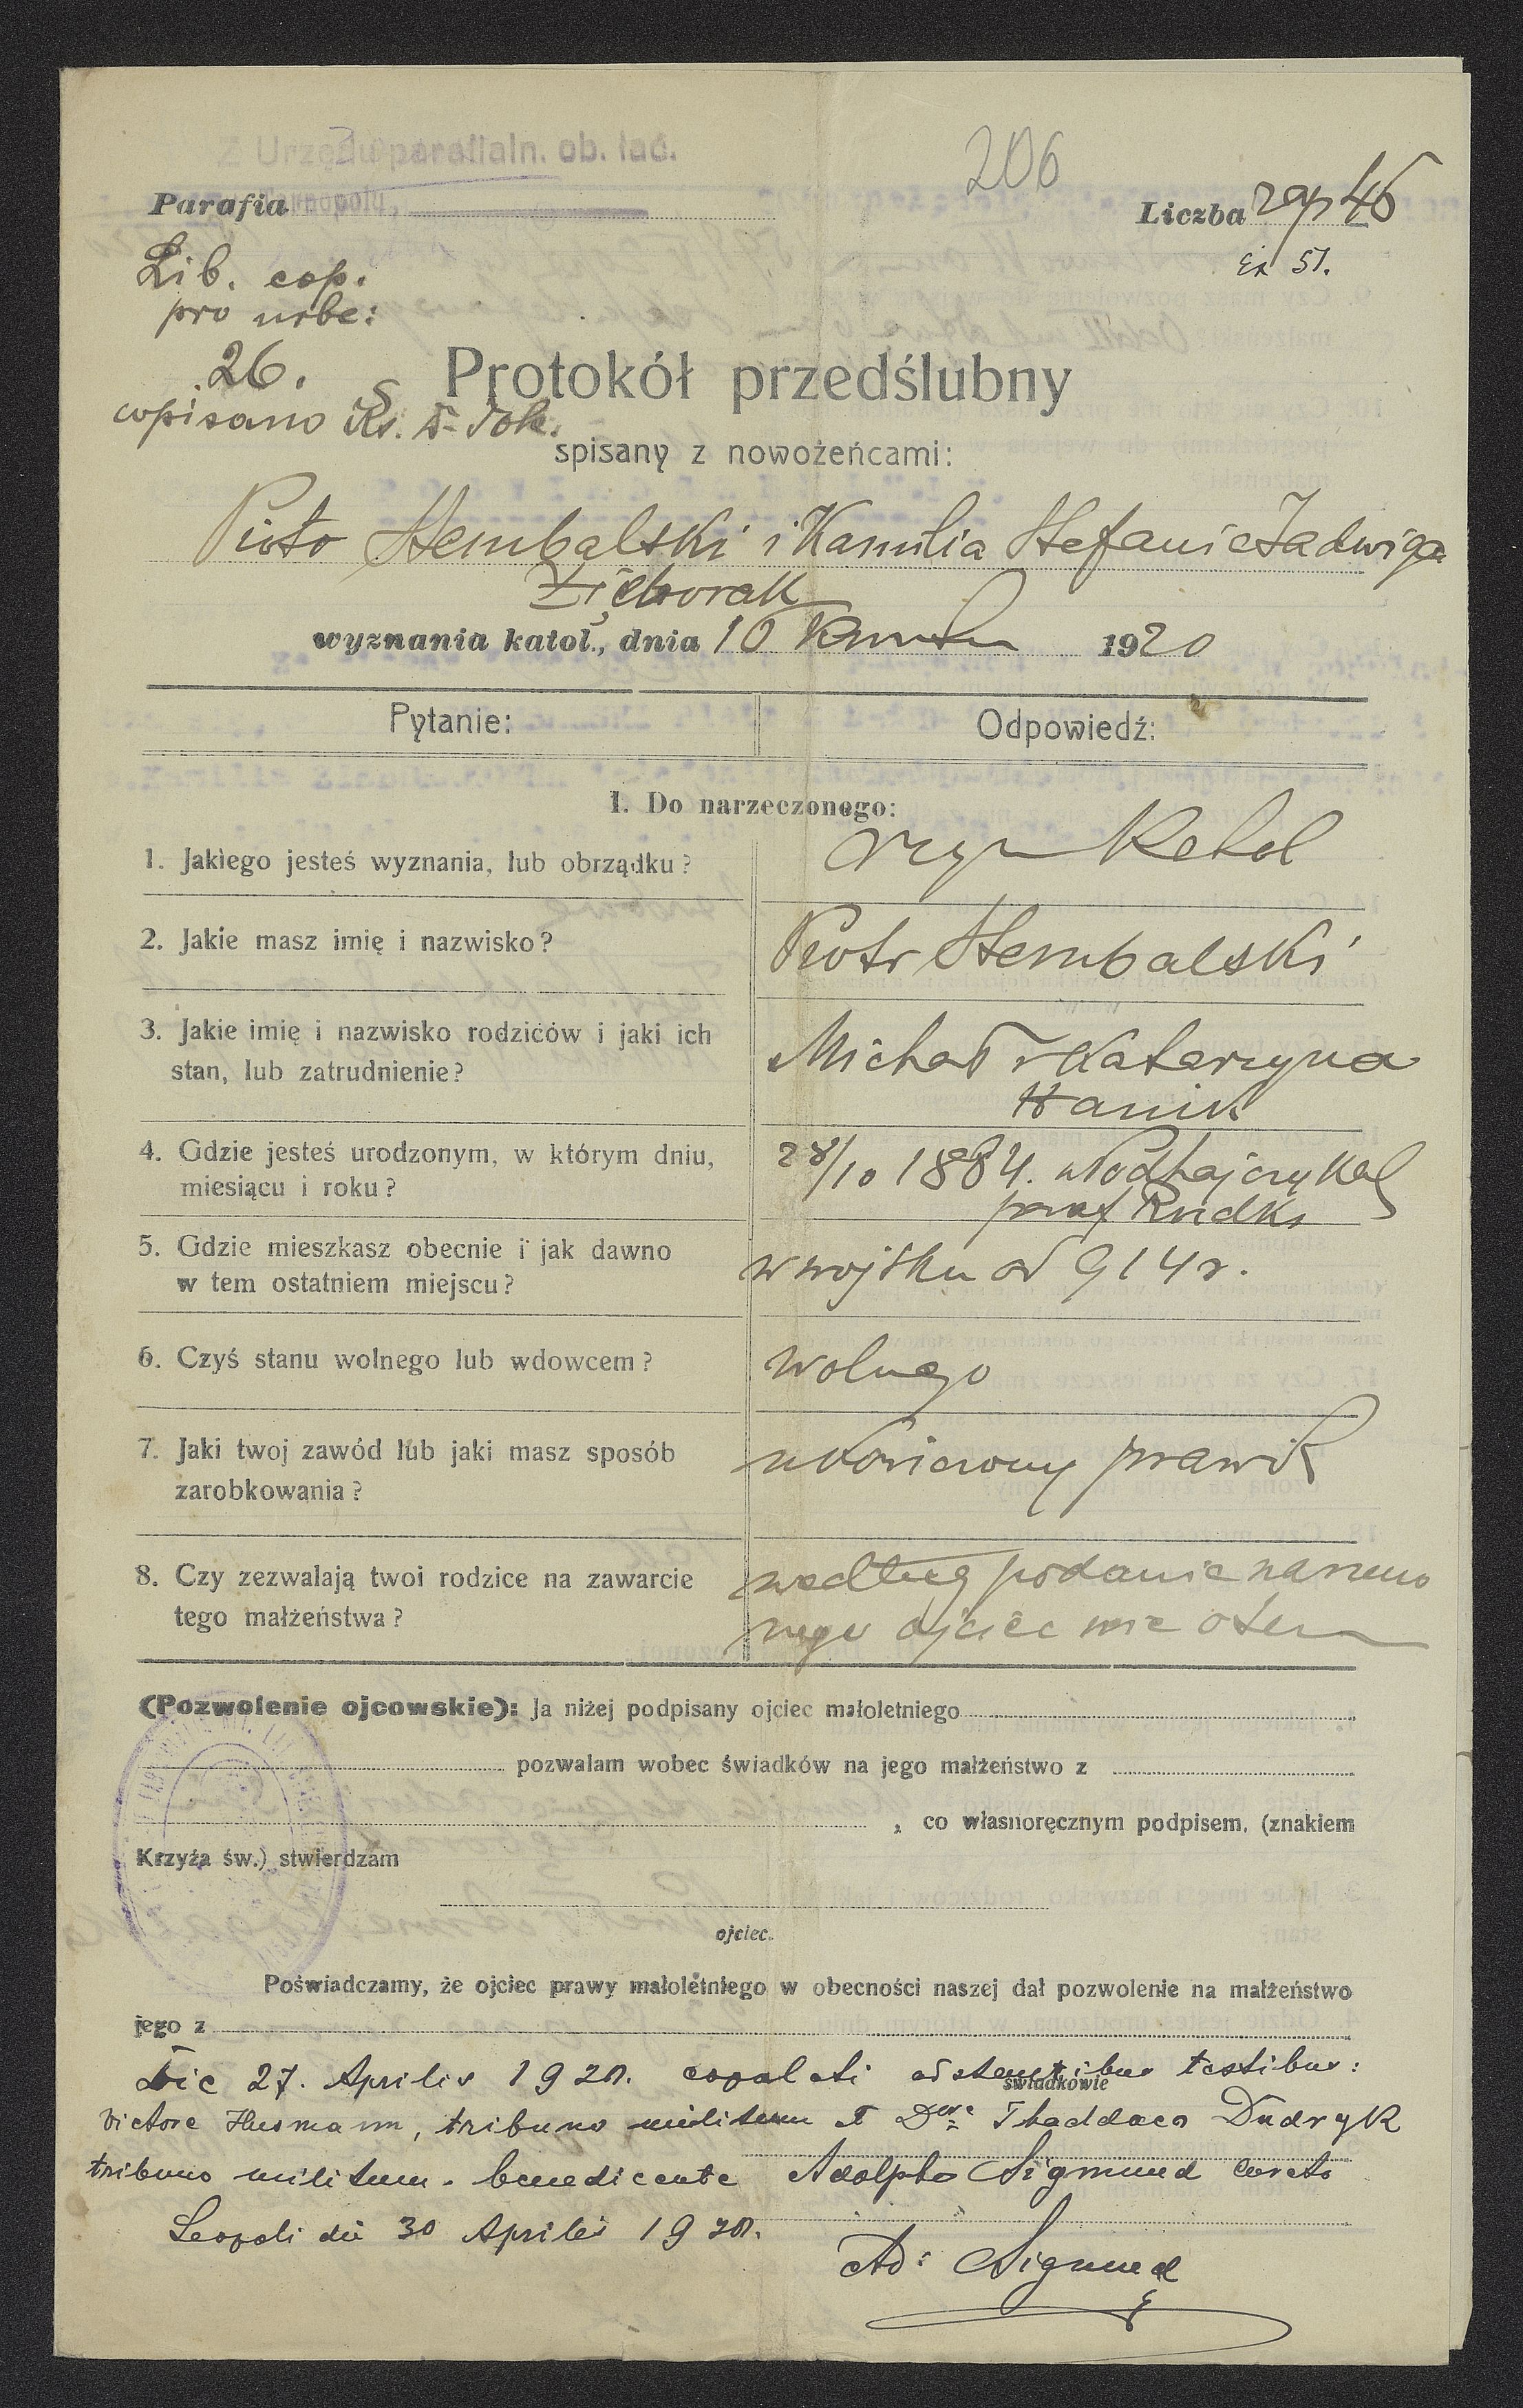 Z Urzędu parafialn. ob. łać.
206
Parafia
Liczba zap 46
Lib. cop.
Ex 51.
pro urbe:
26.
Protokół przedślubny
wpisano Ks.
spisany z nowożeńcami:
Piotr Stembalski i Kamilia Stefania Jadwiga
Zięborak
wyznania katol., dnia 10 1920
Pytanie:
Odpowiedź:
I. Do narzeczonego:
1. Jakiego jesteś wyznania, lub obrządku?
rzym Katol
2. Jakie masz imię i nazwisko?
Piotr Stembalski
3. Jakie imię i nazwisko rodziców i jaki ich
stan, lub zatrudnienie?
Michał i Katarzyna
Hanik
4. Gdzie jesteś urodzonym, w którym dniu,
miesiącu i roku?
28/10 1884.
paraf Rudki
5. Gdzie mieszkasz obecnie i jak dawno
w tem ostatniem miejscu?
w wojsku od 914 r.
6. Czyś stanu wolnego lub wdowcem?
wolnego
7. Jaki twoj zawód lub jaki masz sposób
zarobkowania?
ukończony prawnik
8. Czy zezwalają twoi rodzice na zawarcie
tego małżeństwa?
według podania narzeczo
nego ojciec wie o tem
(Pozwolenie ojcowskie): Ja niżej podpisany ojciec małoletniego
pozwalam wobec świadków na jego małżeństwo z
, co własnoręcznym podpisem, (znakiem
Krzyża św.) stwierdzam
ojciec.
Poświadczamy, że ojciec prawy małoletniego w obecności naszej dał pozwolenie na małżeństwo
jego z
Die 27. Aprilis 1920. copulati adstantibus testibus:
świadkowie
Victore Husmann, tribuno militum et Dre Thaddaeo Dudryk
tribuno militum. benedicente Adolpho Sigmund curato
Leopoli die 30 Aprilis 1920.
Ad: Sigmund